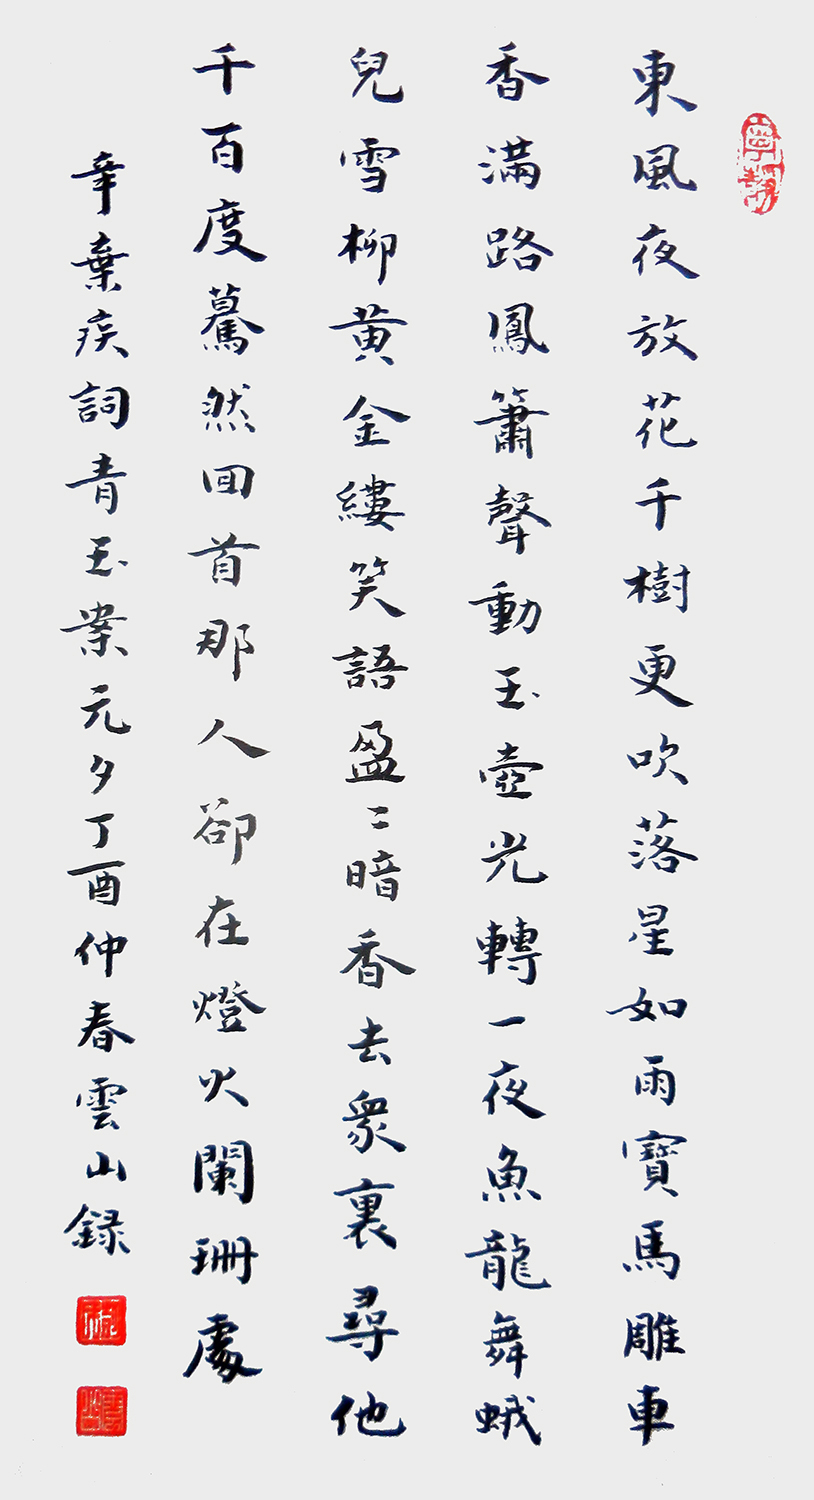 寧靜
東風夜放花千樹更吹落星如雨寶馬雕車
香滿路鳳簫聲動玉壺光轉一夜魚龍舞蛾
兒雪柳黄金縷笑語盈〻暗香去衆裏尋他
千百度驀然回首那人卻在燈火闌珊處
辛棄疾詞青玉案元夕丁酉仲春雲山録